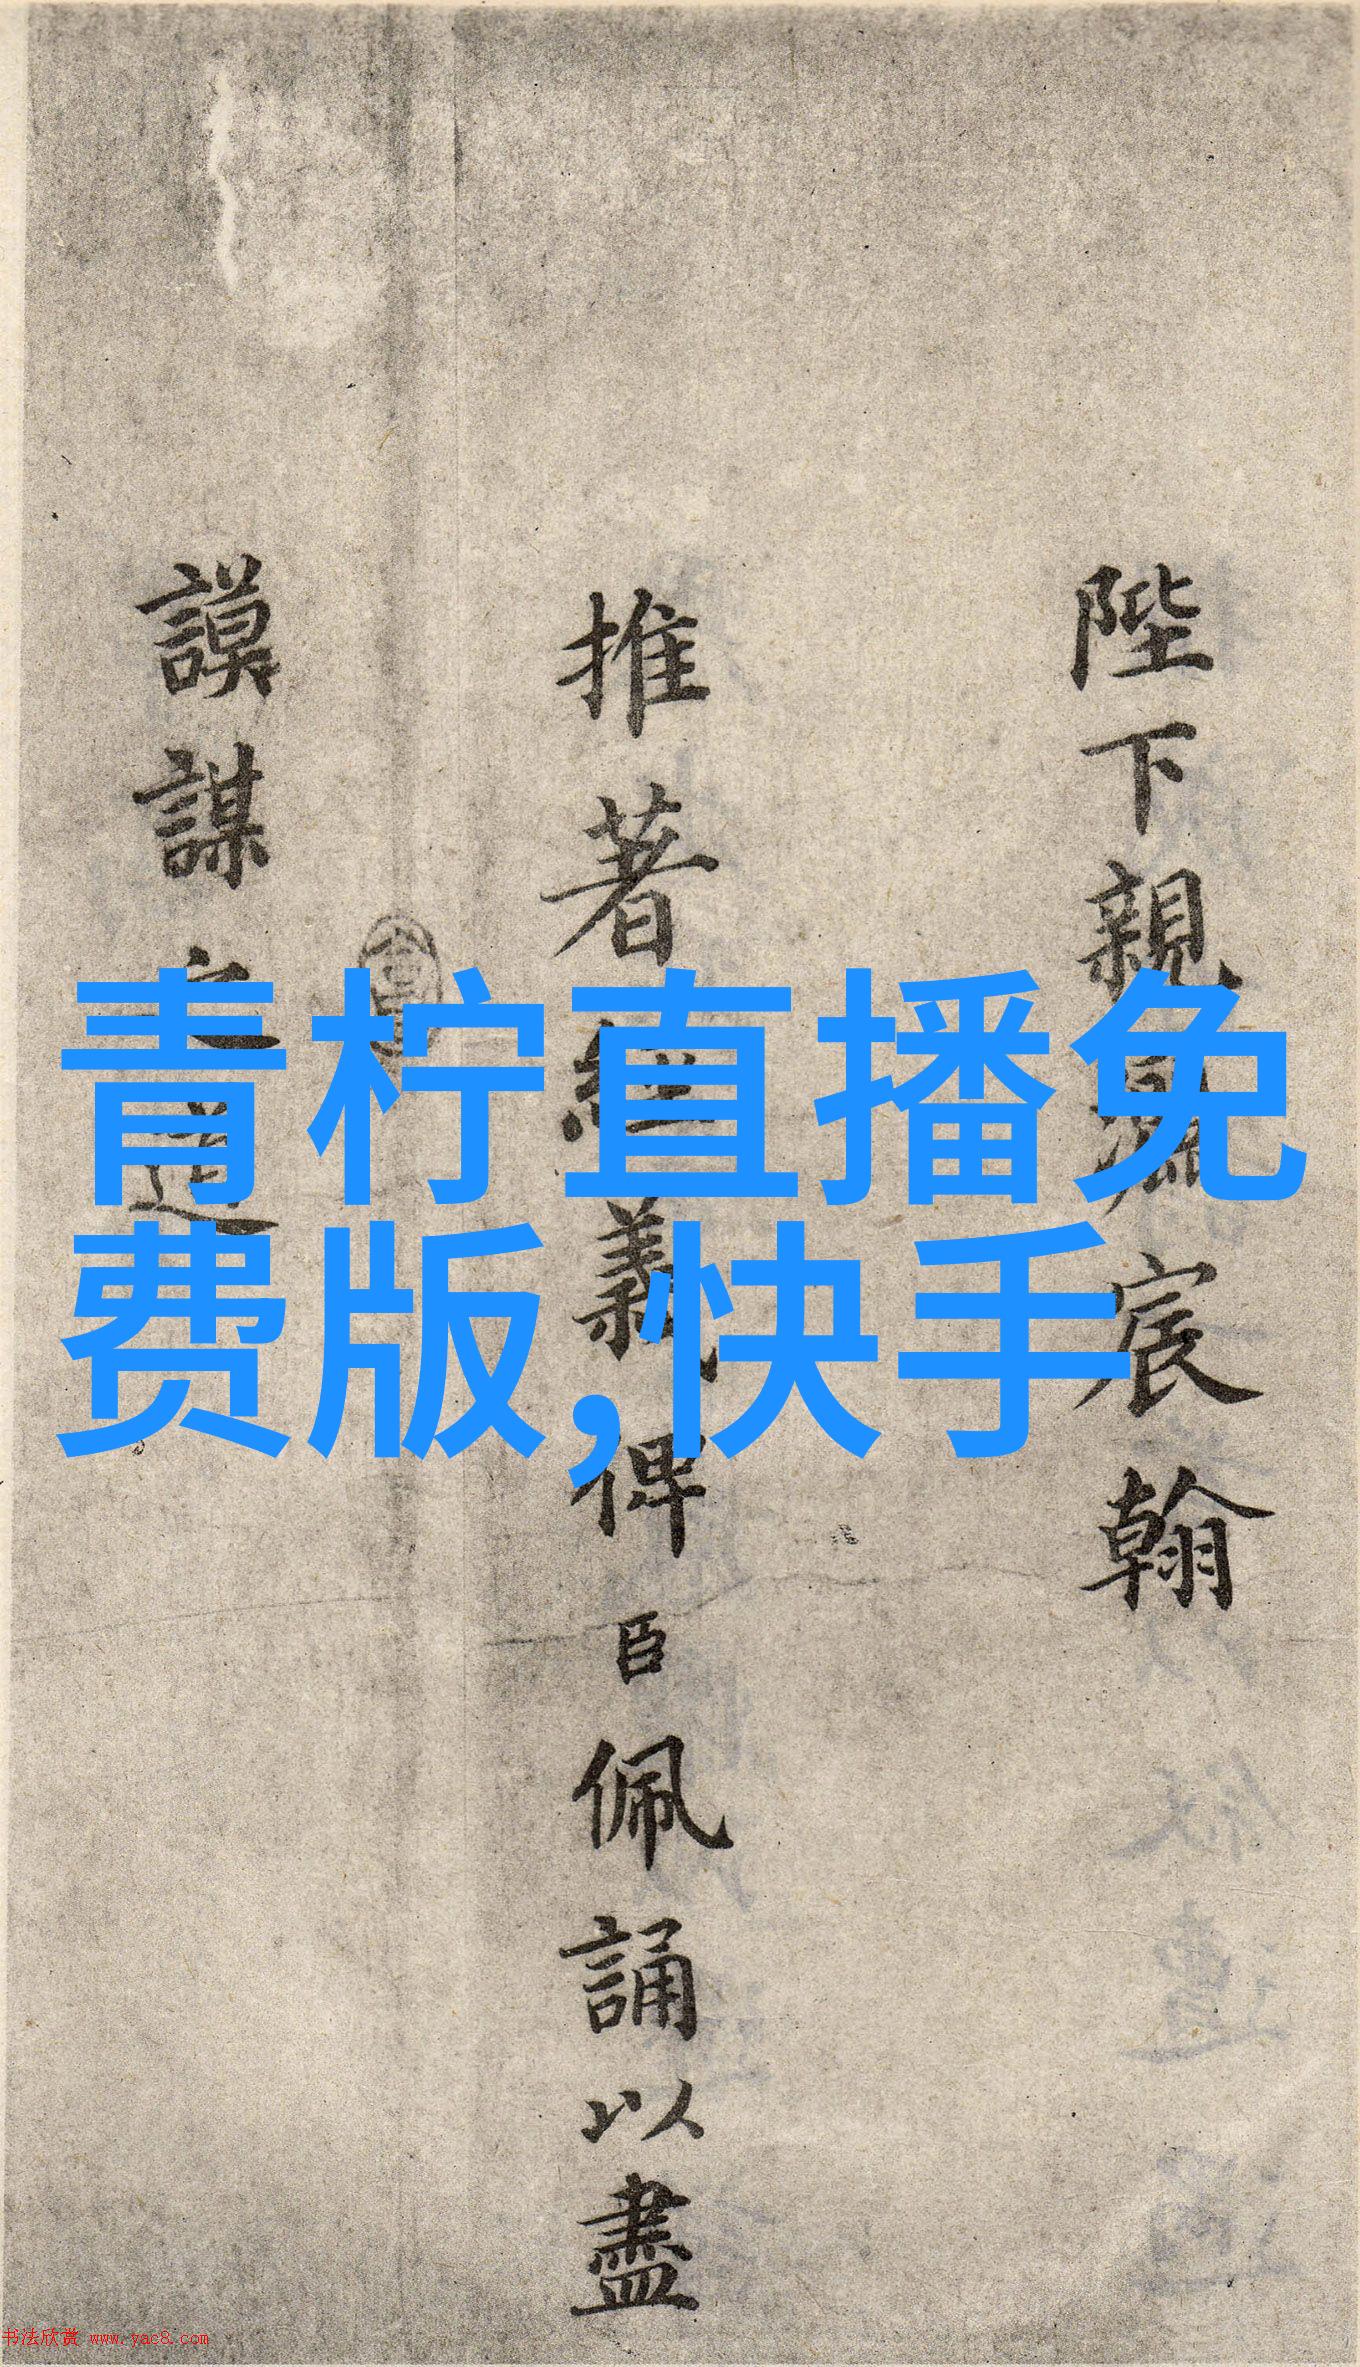 陛下親灑宸翰
推著經義俾臣佩誦以盡
謨謀之道
青柠直播免
费版,快手
书法欣赏 www.yac8.com